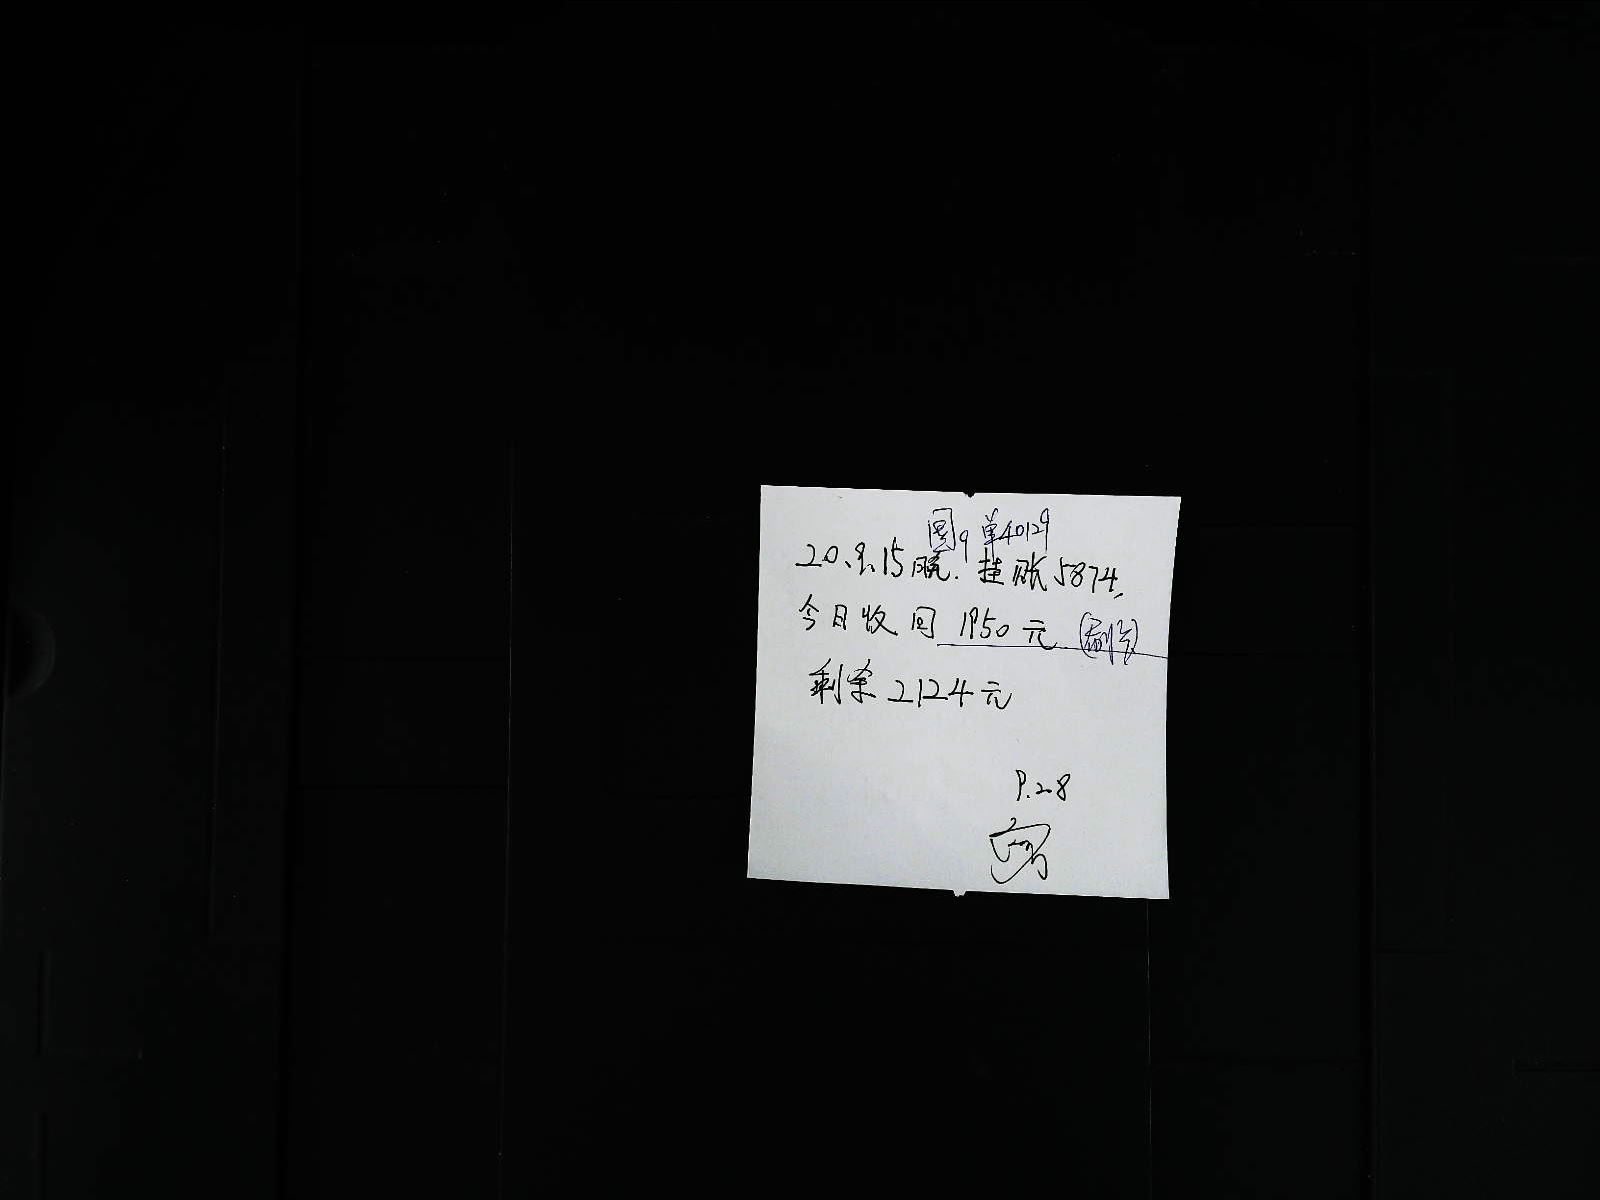 单40129
20.8.15晚.挂账5874,
今日收回 1950元
剩余2124元
P.28